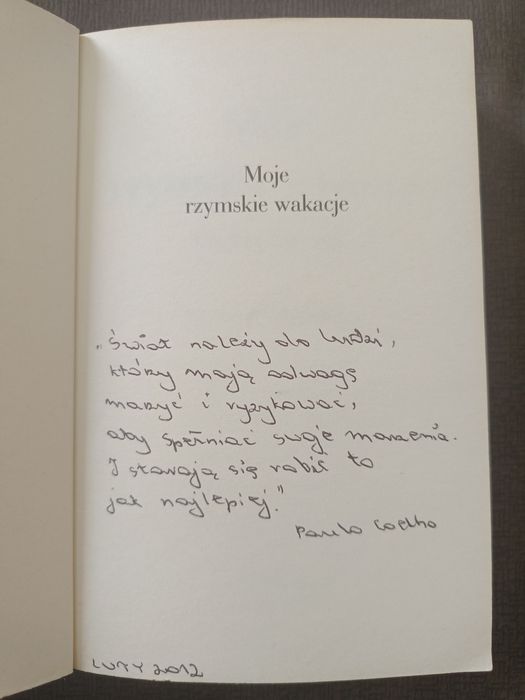 Moje
rzymskie wakacje
„Świat należy do ludzi,
który mają odwagę
marzyć i ryzykować,
aby spełniać swoje marzenia.
I starają się robić to
jak najlepiej."
Paulo Coelho
LUTY 2012